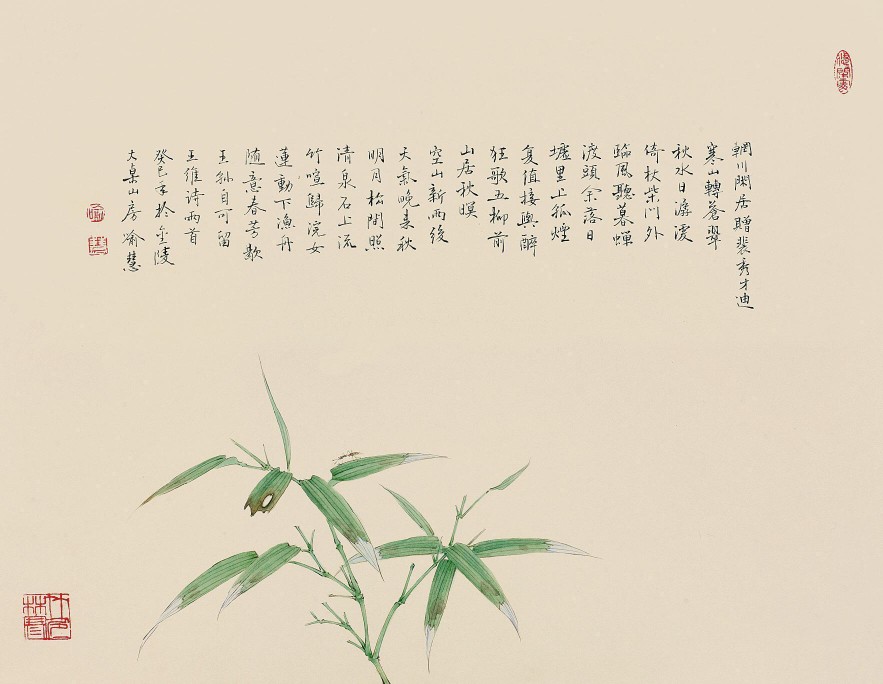 輞川閑居贈裴秀才迪
寒山轉蒼翠
秋水日潺湲
倚杖柴门外
臨風聽暮蝉
渡頭余落日
墟里上孤煙
复值接輿醉
狂歌五柳前
山居秋暝
空山新雨後
天氣晚来秋
明月松間照
清泉石上流
竹喧歸浣女
蓮動下漁舟
随意春芳歇
王孙自可留
王維诗兩首
癸巳年於金陵
大桌山房喻慧